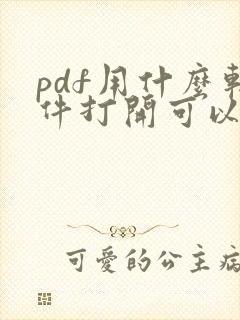 pdf用什麼軟
件打開可以
可愛的公主病